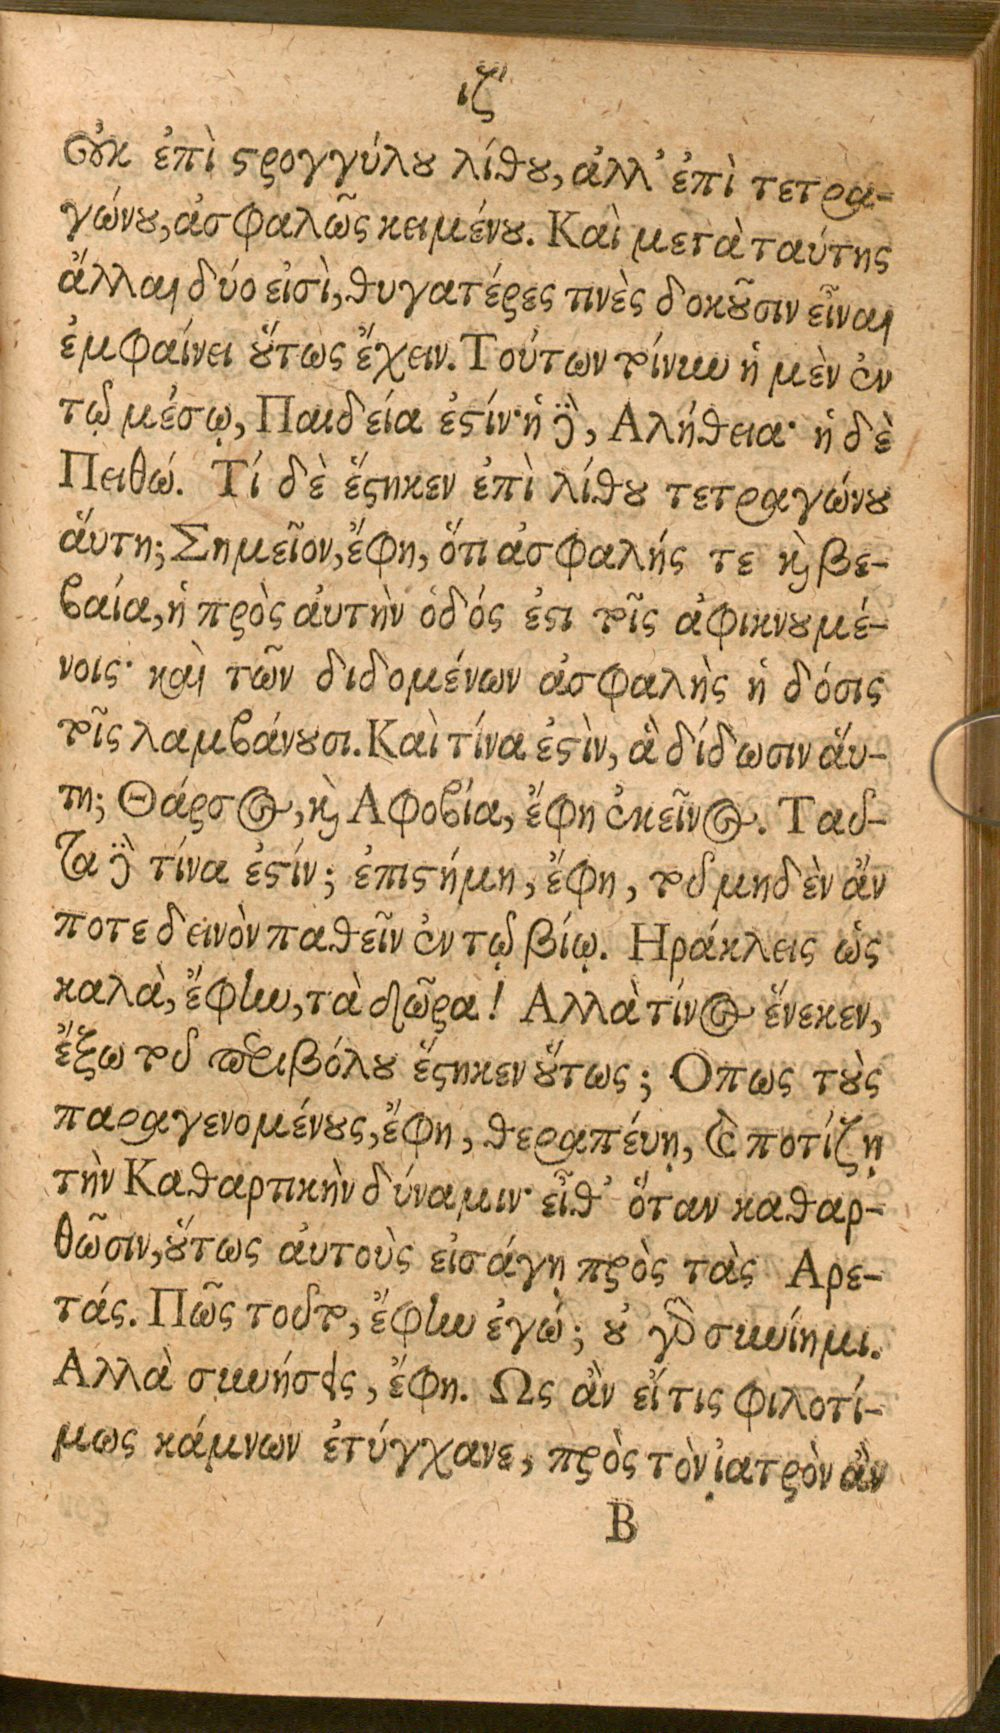 ιζ'
Οὐκ ἐπὶ στρογγύλου λίθου, ἀλλ' ἐπὶ τετρα-
γώνου, ἀσφαλῶς κειμένου. Καὶ μετὰ ταύτης
ἄλλαι δύο εἰσὶ, θυγατέρες τινὲς δοκοῦσιν εἶναι
ἐμφαίνει οὕτως ἔχειν. Τούτων τοίνυν ἡ μὲν ἐν
τῷ μέσῳ, Παιδεία ἐστίν· ἡ δὲ, Αλήθεια· ἡ δὲ
Πειθώ. Τί δὲ ἕστηκεν ἐπὶ λίθου τετραγώνου
ἅυτη; Σημεῖον, ἔφη, ὅτι ἀσφαλής τε καὶ βε-
βαία, ἡ πρὸς ἀυτὴν ὁδός ἐστι τοῖς ἀφικνουμέ-
νοις· καὶ τῶν διδομένων ἀσφαλὴς ἡ δόσις
τοῖς λαμβάνουσι. Καὶ τίνα ἐστὶν, ἃ δίδωσιν ἅυ-
τη; Θάρσος, καὶ Αφοβία, ἔφη ἐκεῖνος. Ταῦ-
τα δὲ τίνα ἐστίν; ἐπιστήμη, ἔφη, τοῦ μηδὲν ἄν
ποτε δεινὸν παθεῖν ἐν τῷ βίῳ. Ηράκλεις ὡς
καλὰ, ἔφην, τὰ δῶρα! Αλλὰ τίνος ἕνεκεν,
ἔξω τοῦ περιβόλου ἕστηκεν οὕτως; Οπως τοὺς
παραγενομένους, ἔφη, θεραπέυῃ, καὶ ποτίζῃ
τὴν Καθαρτικὴν δύναμιν· εἶθ' ὅταν καθαρ-
θῶσιν, οὕτως ἀυτοὺς εἰσάγη πρὸς τὰς Αρε-
τάς. Πῶς τοῦτο, ἔφην ἐγώ; οὐ γὰρ συνίημι.
Αλλὰ συνήσεις, ἔφη. Ως ἂν εἴ τις φιλοτί-
μως κάμνων ἐτύγχανε, πρὸς τὸν ἰατρὸν ἂν
Β